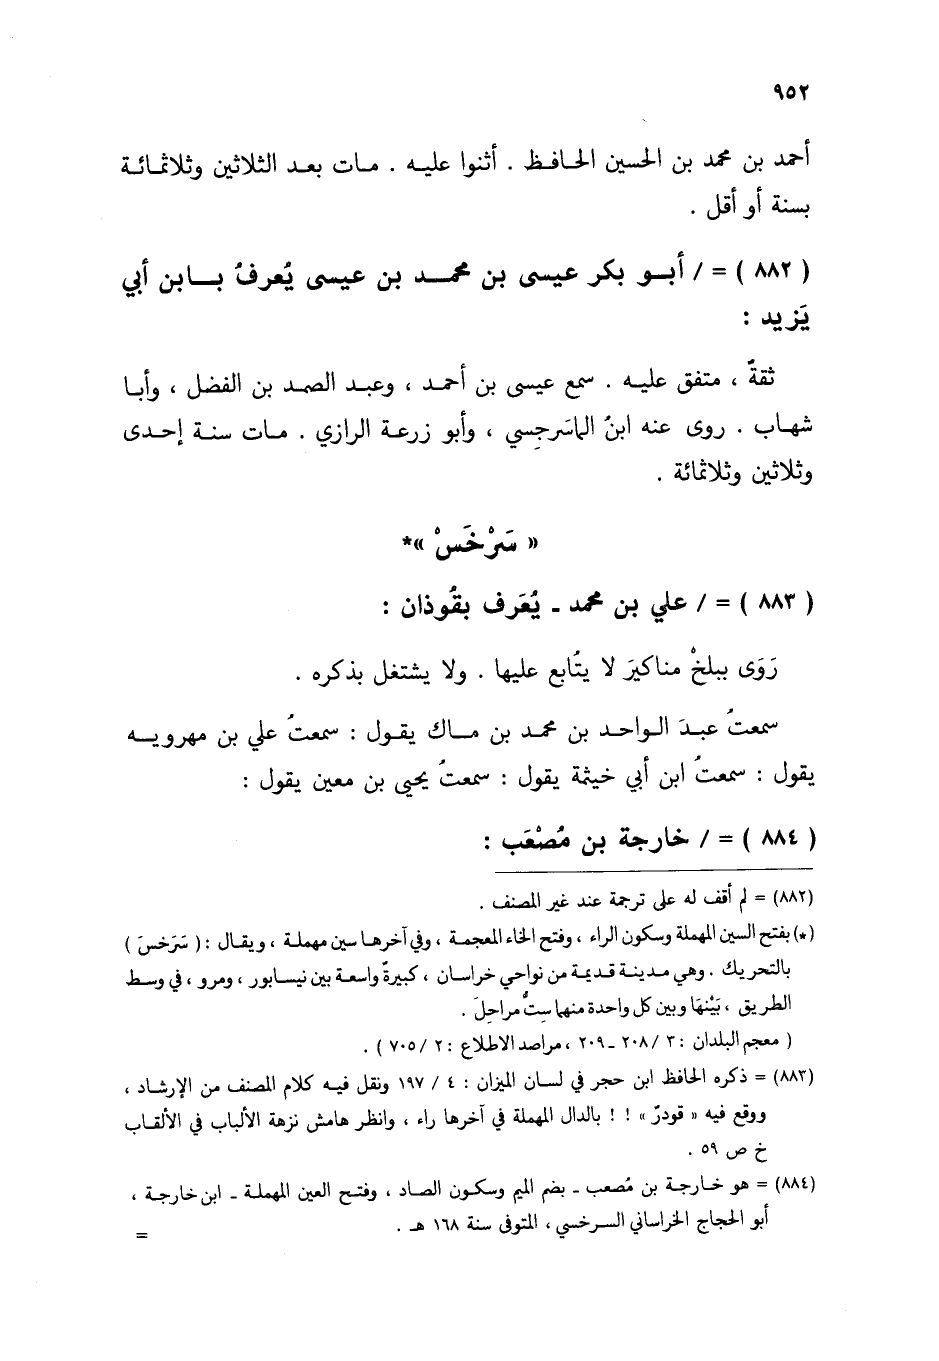 ٩٥٢
أحمد بن محمد بن الحسين الحافظ . أثنوا عليه . مات بعد الثلاثين وثلاثمائة
بسنة أو أقل .
( ٨٨٢ ) = / أبو بكر عيسى بن محمد بن عيسى يُعرفُ بابن أبي
يَزيد :
ثقةٌ ، متفق عليه . سمع عيسى بن أحمد ، وعبد الصمد بن الفضل ، وأبا
شهاب . روى عنه ابنُ الماسَرجِسي ، وأبو زرعة الرازي . مات سنة إحدى
وثلاثين وثلاثمائة .
« سَرْخَسْ »*
( ٨٨٣ ) = / علي بن محمد ـ يُعَرف بقُوذان :
رَوَى ببلخْ مناكيرَ لا يتُابع عليها . ولا يشتغل بذكره .
سمعتُ عبدَ الواحد بن محمد بن ماك يقول : سمعتُ علي بن مهرويه
يقول : سمعتُ ابن أبي خيثمة يقول : سمعتُ يحيى بن معين يقول :
( ٨٨٤ ) = / خارجة بن مُصْعَب :
(٨٨٢) = لم أقف له على ترجمة عند غير المصنف .
(*) بفتح السين المهملة وسكون الراء ، وفتح الخاء المعجمة ، وفي آخرها سين مهملة ، ويقال : ( سَرَخسَ )
بالتحريك . وهي مدينة قديمة من نواحي خراسان ، كبيرةٌ واسعة بين نيسابور ، ومرو ، في وسط
الطريق ، بَيْنهَا وبين كل واحدة منهما ستُّ مراحلَ .
( معجم البلدان : ٣ / ٢٠٨ ـ ٢٠٩ ، مراصد الاطلاع : ٢ / ٧٠٥ ) .
(٨٨٣) = ذكره الحافظ ابن حجر في لسان الميزان : ٤ / ١٩٧ ونقل فيه كلام المصنف من الإرشاد ،
ووقع فيه « قودرٌ » ! ! بالدال المهملة في آخرها راء ، وانظر هامش نزهة الألباب في الألقاب
خ ص ٥٩ .
(٨٨٤) = هو خارجة بن مُصعب ـ بضم الميم وسكون الصاد ، وفتح العين المهملة ـ ابن خارجة ،
أبو الحجاج الخراساني السرخسي ، المتوفى سنة ١٦٨ هـ .
=